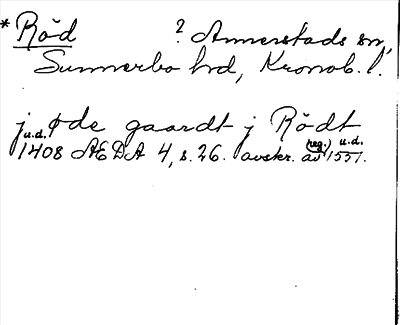 * Röd ? Annerstads sn,
Sunnerbo hd, Kronob. l.
j øde gaardt j Rödt
u.d. 1408 AEDA 4, s. 26. avskr. av (reg.) u.d. 1551.